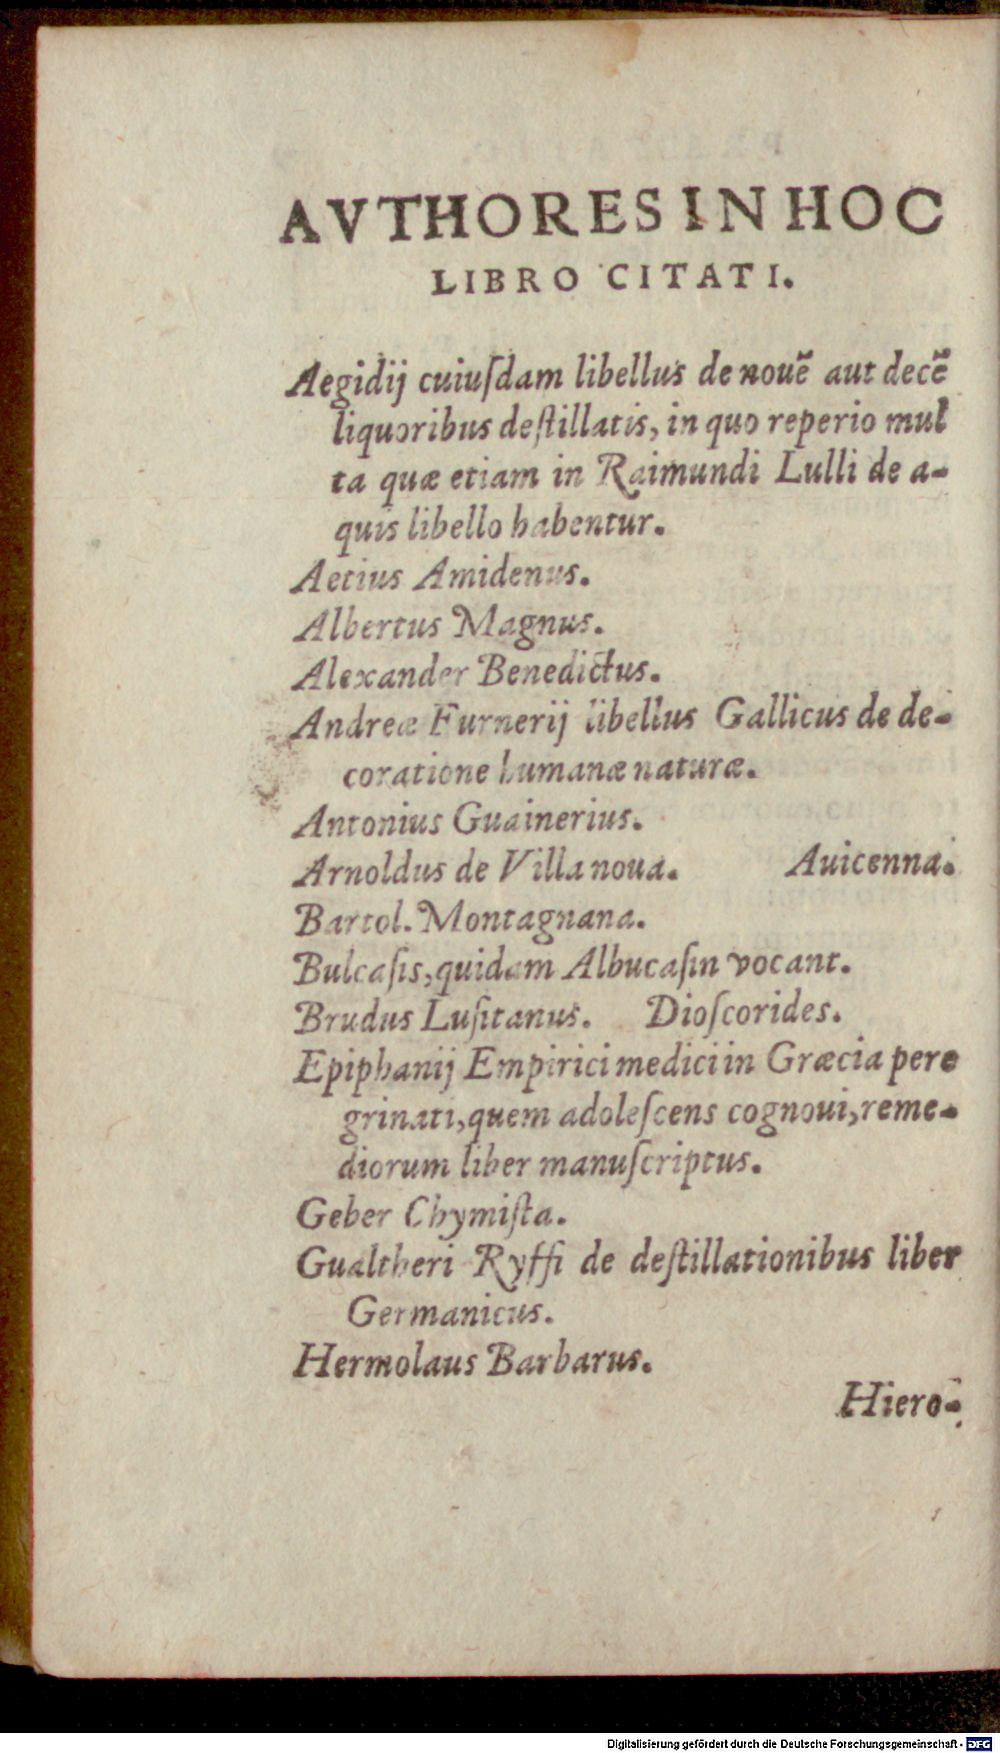 AVTHORES IN HOC
LIBRO CITATI.
Aegidij cuiuſdam libellus de nouē aut decē
liquoribus deſtillatis, in quo reperio mul
ta quæ etiam in Raimundi Lulli de a-
quis libello habentur.
Aetius Amidenus.
Albertus Magnus.
Alexander Benedictus.
Andreæ Furnerij libellus Gallicus de de-
coratione humanæ naturæ.
Antonius Guainerius.
Arnoldus de Villa noua. Auicenna.
Bartol. Montagnana.
Bulcaſis, quidam Albucaſin vocant.
Brudus Luſitanus. Dioſcorides.
Epiphanij Empirici medici in Græcia pere
grinati, quem adoleſcens cognoui, reme-
diorum liber manuſcriptus.
Geber Chymiſta.
Gualtheri Ryffi de deſtillationibus liber
Germanicus.
Hermolaus Barbarus.
Hiero-
Digitalisierung gefördert durch die Deutsche Forschungsgemeinschaft - DFG